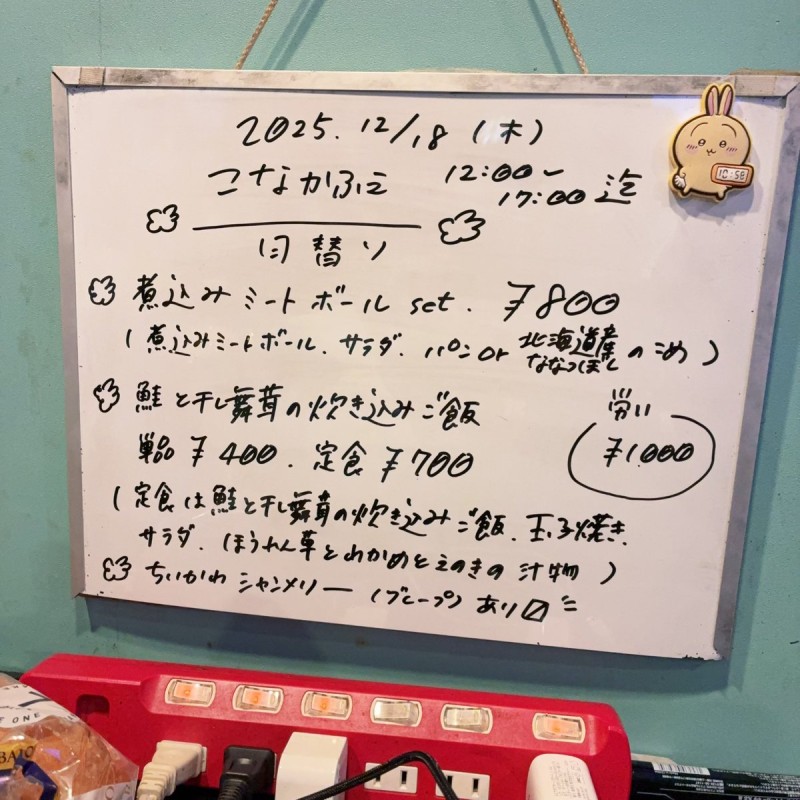 2025.12/18 (木)
こなかふに 12:00〜
17:00迄
10:58
日替り
煮込みミートボール set. ¥800
(煮込みミートボール、サラダ、パンor 北海道産
ななつぼし のこめ)
鮭と干し舞茸の炊き込みご飯
労い
単品 ¥400. 定食 ¥700
¥1.000
(定食は鮭と干し舞茸の炊き込みご飯、玉子焼き
サラダ、ほうれん草とわかめとえのきの汁物)
ちいかわ シャンメリー (グレープ) あり〼